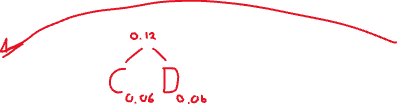 0.12
C 0.06 D 0.06